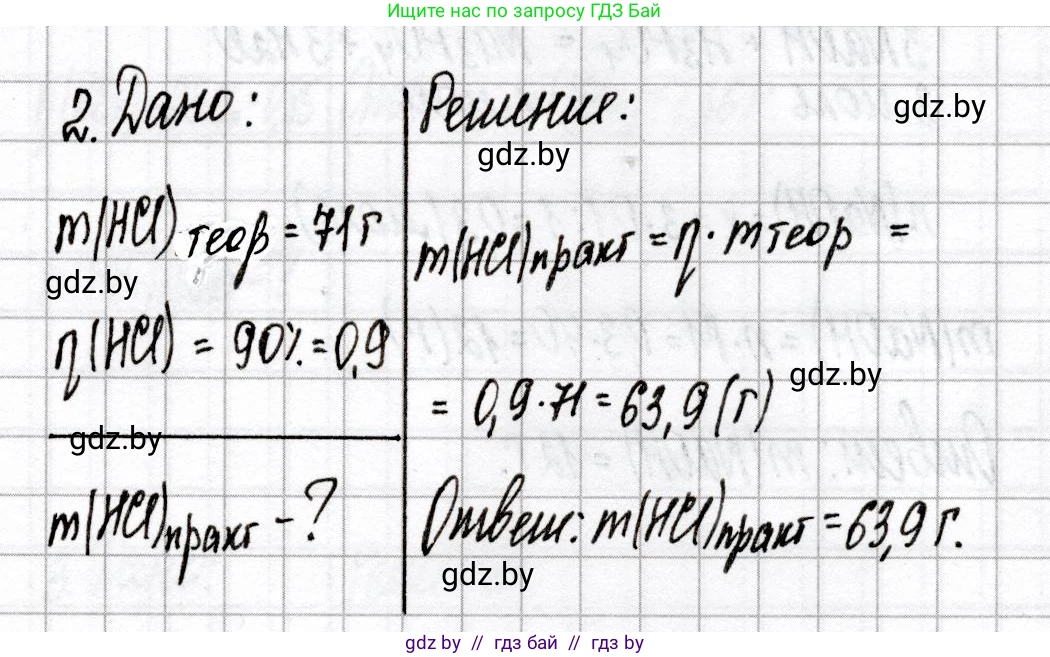 Ищите нас по запросу ГДЗ Бай
2. Дано:
m(HCl) теор = 71 г
η(HCl) = 90% = 0,9
m(HCl)практ - ?
Решение:
m(HCl)практ = η · m теор =
= 0,9 · 71 = 63,9 (г)
Ответ: m(HCl)практ = 63,9 г.
gdz.by
gdz.by
gdz.by
gdz.by
gdz.by
gdz.by
gdz.by // гдз бай // гдз by